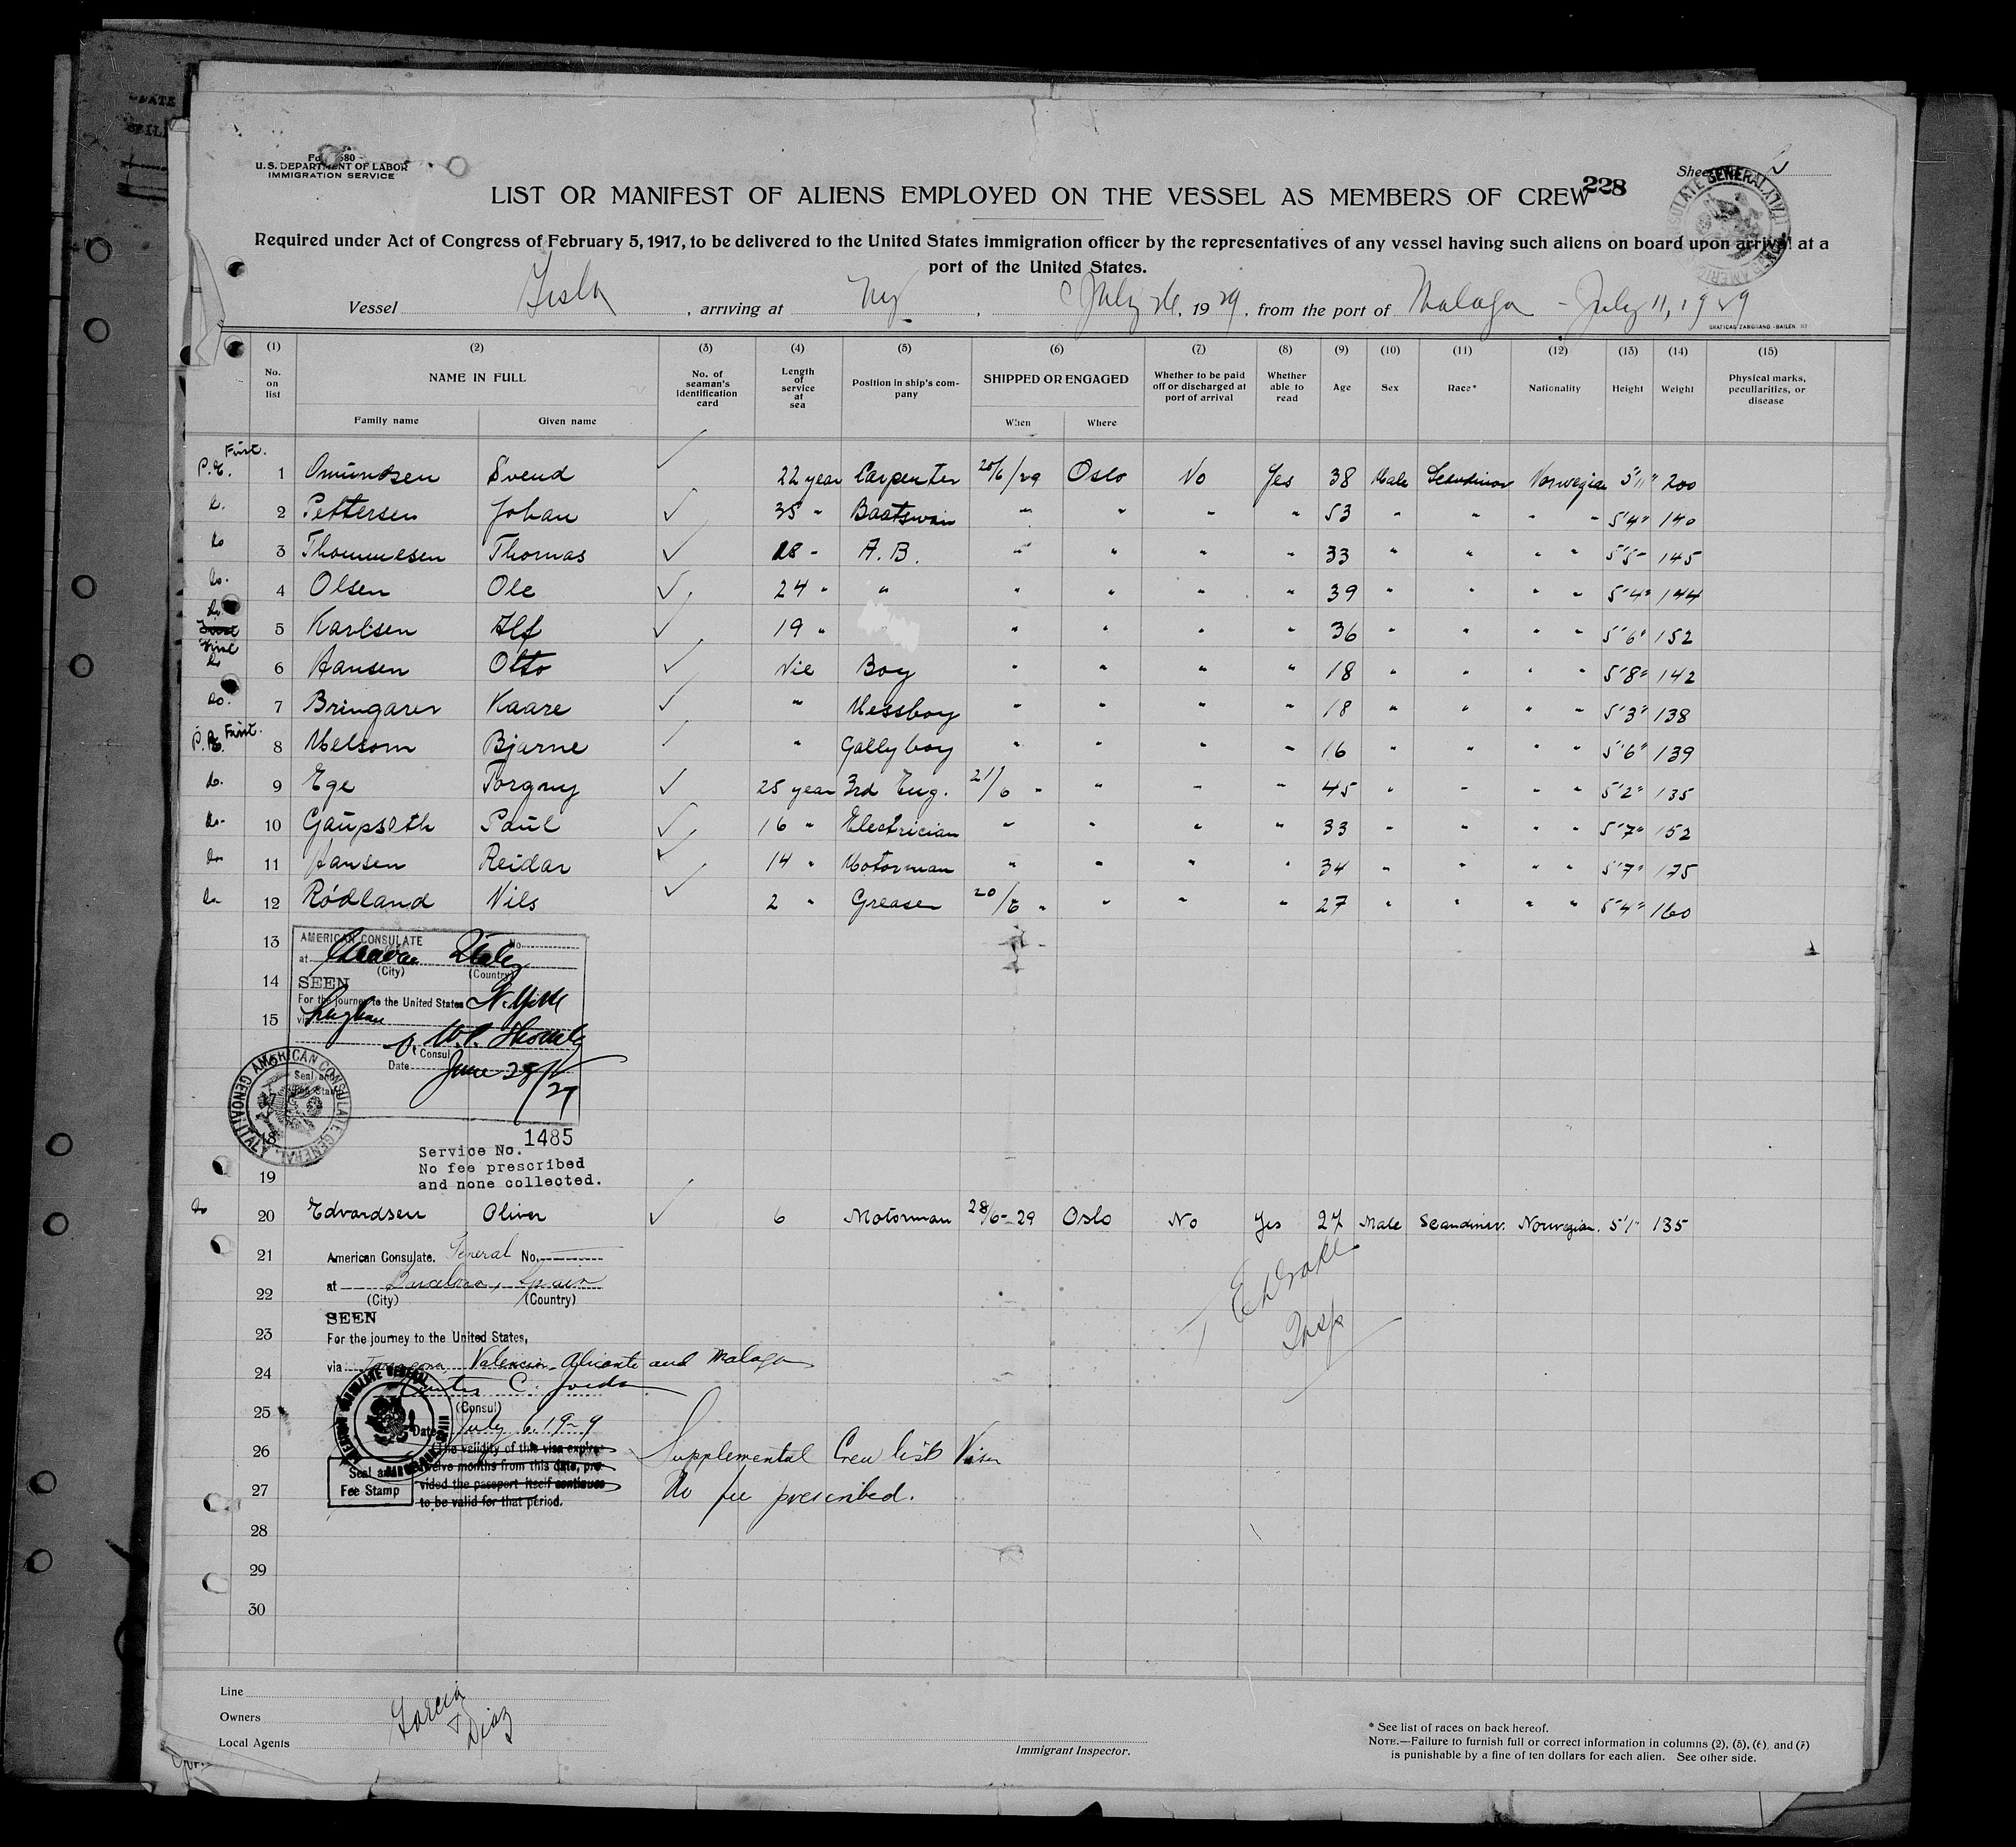 U. S. DEPARTMENT OF LABOR
IMMIGRATION SERVICE
Sheet 2
LIST OR MANIFEST OF ALIENS EMPLOYED ON THE VESSEL AS MEMBERS OF CREW 228
Required under Act of Congress of February 5, 1917, to be delivered to the United States immigration officer by the representatives of any vessel having such aliens on board upon arrival at a
port of the United States.
Vessel , arriving at Ny , July 26, 1929, from the port of Malaga - July 11, 1929
(1) (2) (3) (4) (5) (6) (7) (8) (9) (10) (11) (12) (13) (14) (15)
No. on list NAME IN FULL Family name Given name No. of seaman's identification card Length of service at sea Position in ship's company SHIPPED OR ENGAGED When Where Whether to be paid off or discharged at port of arrival Whether able to read Age Sex Race* Nationality Height Weight Physical marks, peculiarities, or disease
First.
P.E. 1 Omundsen Svend 22 year Carpenter 20/6/29 Oslo No Yes 38 Male Scandinav Norwegian 5'11" 200
Do. 2 Pettersen Johan 35 " Boatswain " " " " 53 " " " " 5'4" 140
Do 3 Thommesen Thomas 18 " A.B. " " " " 33 " " " " 5'5" 145
Do. 4 Olsen Ole 24 " " " " " " 39 " " " " 5'4" 144
Do. 5 Karlsen Alf 19 " " " " " 36 " " " " 5'6" 152
First
Do 6 Hansen Otto Nil Boy " " " " 18 " " " " 5'8" 142
Do. 7 Bringaren Kaare " Messboy " " " " 18 " " " " 5'3" 138
First.
P.E. 8 Melsom Bjarne " Gallyboy " " " " 16 " " " " 5'6" 139
Do. 9 Ege Torgny 25 year 3rd Eng. 21/6 " " " " 45 " " " " 5'2" 135
Do. 10 Gaupseth Paul 16 " Electrician " " " " 33 " " " " 5'7" 152
Do 11 Hansen Reidar 14 " Motorman " " " " 34 " " " " 5'7" 175
Do 12 Ródland Nils 2 " Greaser 20/6 " " " " 27 " " " " 5'4" 160
13 AMERICAN CONSULATE No.
at Genoa Italy
(City) (Country)
14 SEEN
For the journey to the United States N. York
15 via
Consul
Date June 28/29
AMERICAN CONSULATE GENERAL GENOA ITALY
Seal and Fee Stamp
1485
Service No.
No fee prescribed
and none collected.
19
Do 20 Edvardsen Oliver 6 Motorman 28/6-29 Oslo No Yes 27 Male Scandinav. Norwegian. 5'1" 135
21 American Consulate. General No.
at Barcelona, Spain
22 (City) (Country)
SEEN
23 For the journey to the United States,
via Tarragona Valencia Alicante and Malaga
24
(Consul)
25 Date July 6, 1929
26 (The validity of this visa expires
twelve months from this date, pro-
27 vided the passport itself continues
to be valid for that period.
Seal and
Fee Stamp
E. Drake
Insp
Supplemental Crew list Visa
No fee prescribed.
28
29
30
Line
Owners
Local Agents
Garcia
& Diaz
Immigrant Inspector.
* See list of races on back hereof.
NOTE.—Failure to furnish full or correct information in columns (2), (5), (6), and (7)
is punishable by a fine of ten dollars for each alien. See other side.